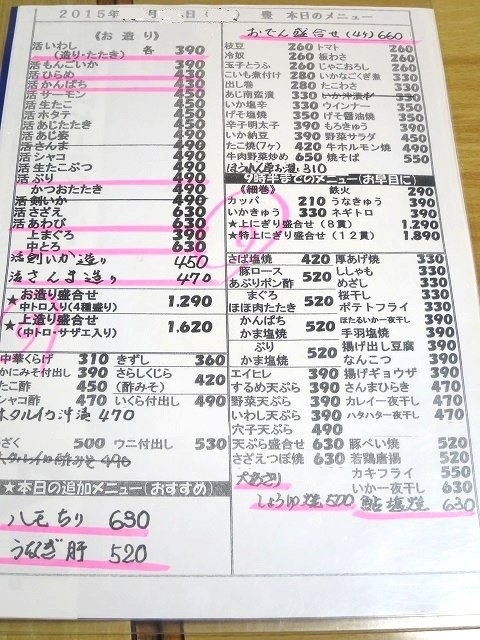 2015年 月 日( ) 豊 本日のメニュー
《お造り》
活いわし
(造り・たたき) 各 390
活もんごいか 390
活ひらめ 430
活かんぱち 430
活サーモン 430
活生たこ 490
活ホタテ 490
活あじたたき 490
活あじ姿 490
活さんま 490
活シャコ 490
活生たこぶつ 490
活ぶり 490
かつおたたき 490
活剣いか 490
活さざえ 630
活あわび 630
上まぐろ 390
中とろ 630
活剣いか造り 450
活さんま造り 470
★お造り盛合せ
中トロ入り(4種盛り) 1.290
★上造り盛合せ
(中トロ・サザエ入り) 1.620
中華くらげ 310 きずし 360
かにみそ付出し 390 さらしくじら
たこ酢 450 (酢みそ) 420
シャコ酢 470 いくら付出し 490
ホタルイカ沖漬 470
ざく 500 ウニ付出し 530
ホタルイカ酢みそ 490
★本日の追加メニュー(おすすめ)
ハモちり 630
うなぎ肝 520
おでん盛合せ(4ヶ) 660
枝豆 260 トマト 260
冷奴 260 板わさ 260
玉子とうふ 260 じゃこおろし 260
こいも煮付け 280 いかなごくぎ煮 330
出し巻 280 たこわさ 330
あじ南蛮漬 330 いか沖漬け 330
いか塩辛 330 ウインナー 350
げそ塩焼 350 げそ醤油焼 350
辛子明太子 390 もろきゅう 390
いか納豆 390 野菜サラダ 450
たこ焼(7ヶ) 420 牛ホルモン焼 490
牛肉野菜炒め 650 焼そば 550
ほうれん草お浸し 310
9時半までのメニュー(お早目に)
《細巻》 鉄火 290
カッパ 210 うなきゅう 390
いかきゅう 330 ネギトロ 390
★上にぎり盛合せ(8貫) 1.290
★特上にぎり盛合せ(12貫) 1.890
さば塩焼 420 厚あげ焼 330
豚ロース ししゃも 330
あぶりポン酢 520 めざし 330
まぐろ 桜干し 330
ほほ肉たたき 520 ポテトフライ 330
かんぱち ほたるいか一夜干し 390
かま塩焼 520 手羽塩焼 390
ぶり 揚げ出し豆腐 390
かま塩焼 520 なんこつ 390
エイヒレ 390 揚げギョウザ 390
するめ天ぷら 390 さんまひらき 470
野菜天ぷら 390 カレイ一夜干し 470
いわし天ぷら 390 ハタハタ一夜干し 470
穴子天ぷら 490
天ぷら盛合せ 630 豚ぺい焼 520
さざえつぼ焼 630 若鶏唐揚 520
カキフライ 550
いか一夜干し 630
大あさり
しょうゆ焼 500 鮎塩焼 630